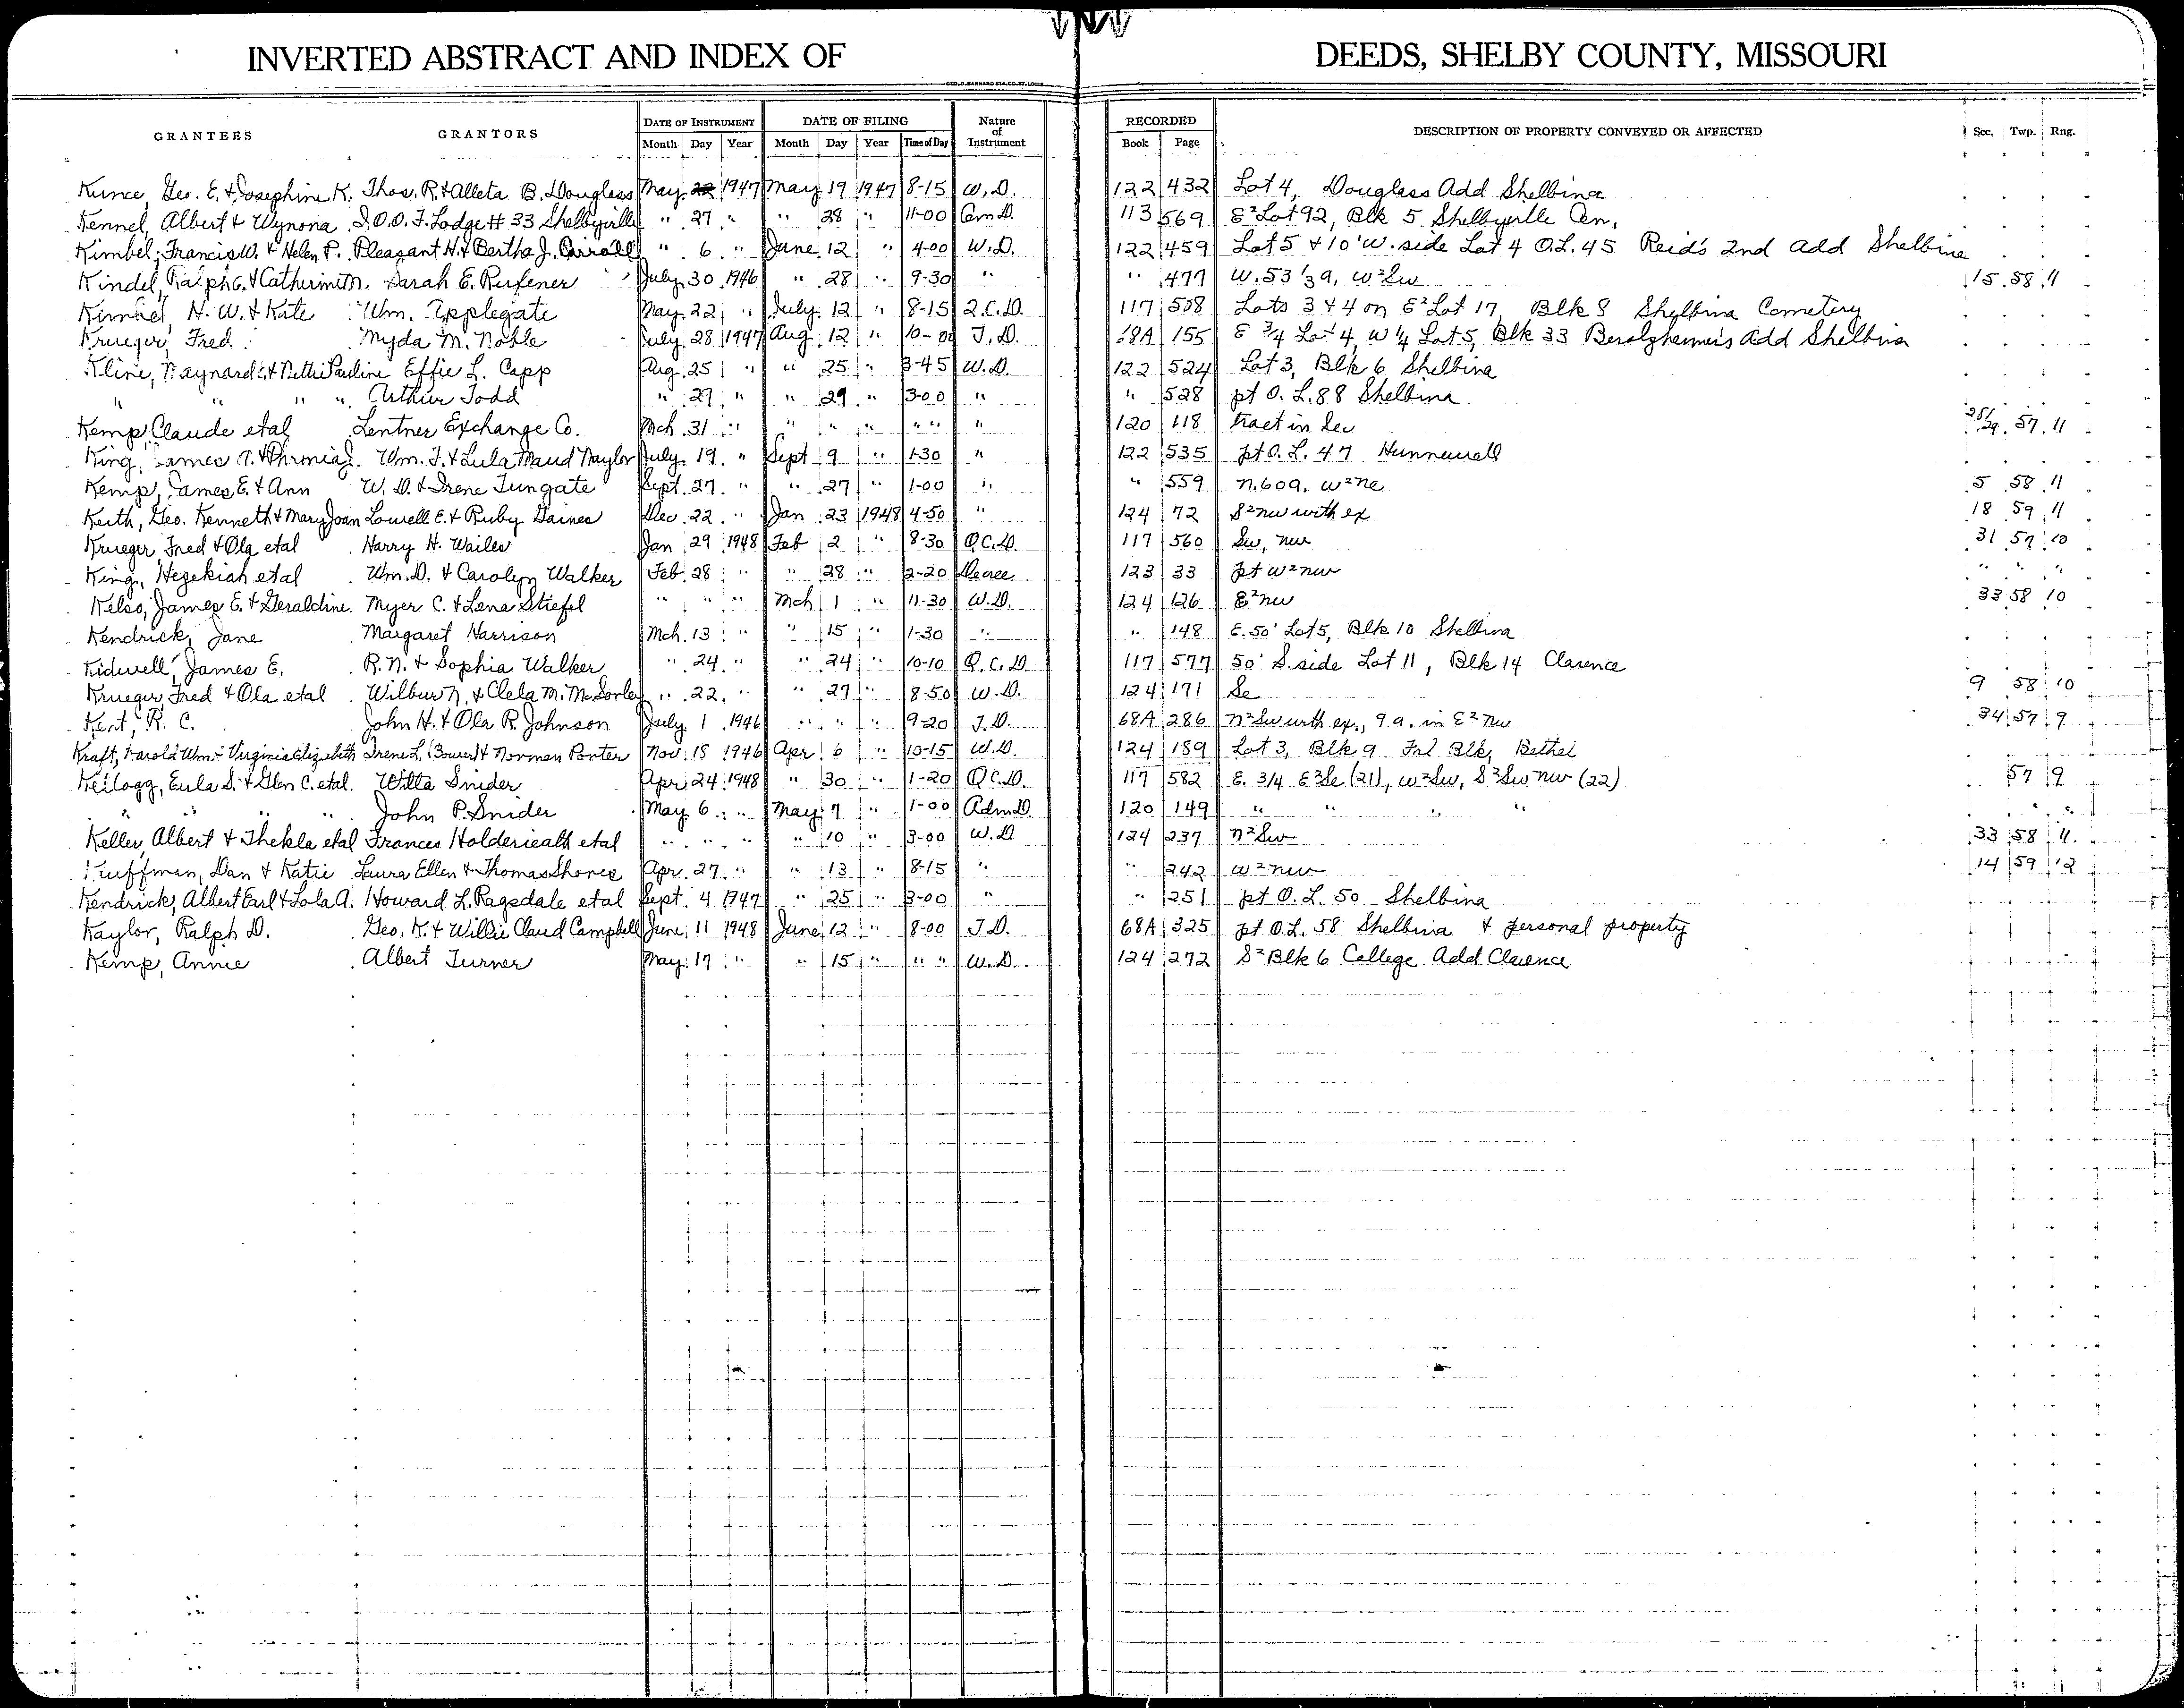 INVERTED ABSTRACT AND INDEX OF DEEDS, SHELBY COUNTY, MISSOURI
GEO. D. BARNARD STA. CO. ST. LOUIS
GRANTEES GRANTORS DATE OF INSTRUMENT DATE OF FILING Nature of Instrument RECORDED DESCRIPTION OF PROPERTY CONVEYED OR AFFECTED Sec. Twp. Rng.
Month Day Year Month Day Year Time of Day Book Page
Kunce, Geo. E. & Josephine K. Thos. R. & Alleta B. Douglass May 1947 May 19 1947 8-15 W.D. 122 432 Lot 4, Douglass Add Shelbina
Kennel, Albert & Wynona I.O.O.F. Lodge # 33 Shelbyville " 27 " " 28 " 11-00 Cem D. 113 569 E² Lot 92, Blk 5 Shelbyville Cem.
Kimbel, Francis W. & Helen P. Pleasant H. & Bertha J. Carroll " 6 " June 12 " 4-00 W.D. 122 459 Lot 5 & 10' W. side Lot 4 O.L. 45 Reid's 2nd Add Shelbina
Kindel, Ralph C. & Catherine M. Sarah E. Rufener July 30 1946 " 28 " 9-30 " " 477 W. 53⅓ a. W²Sw 15 58 11
Kimbel, H. W. & Kate Wm. Applegate May 22 " July 12 " 8-15 2.C.D. 117 508 Lots 3 & 4 on E² Lot 17, Blk 8 Shelbina Cemetery
Krueger, Fred Myda M. Noble July 28 1947 Aug 12 " 10-00 T.D. 68A 155 E ¾ Lot 4, W ¼ Lot 5, Blk 33 Add Shelbina
Kline, Maynard E. & Nettie Pauline Effie L. Capp Aug 25 " " 25 " 3-45 W.D. 122 524 Lot 3, Blk 6 Shelbina
" " " " Arthur Todd " 29 " " 29 " 3-00 " " 528 pt O.L. 88 Shelbina
Kemp, Claude etal Lentner Exchange Co. Mch 31 " " " " " " " 120 118 tract in Sec 28/29 57 11
King, James T. & Wm. F. & Lula Maud Naylor July 19 " Sept 9 " 1-30 " 122 535 pt O.L. 47 Hunnewell
Kemp, James E. & Ann W. D. & Irene Tungate Sept. 27 " " 27 " 1-00 " " 559 N. 60a. W²Ne 5 58 11
Keith, Geo. Kenneth & Mary Joan Lowell E. & Ruby Gaines Dec. 22 " Jan 23 1948 4-50 " 124 72 S²Nw with ex 18 59 11
Krueger Fred & Ola etal Harry H. Wailes Jan 29 1948 Feb 2 " 8-30 Q.C.D. 117 560 Sw, Nw 31 57 10
King, Hezekiah etal Wm. D. & Carolyn Walker Feb. 28 " " 28 " 2-20 Decree 123 33 pt W²Nw " " "
Kelso, James E. & Geraldine Myer C. & Lena Stiefel " " " Mch 1 " 11-30 W.D. 124 126 E²Nw 33 58 10
Kendrick, Jane Margaret Harrison Mch. 13 " " 15 " 1-30 " " 148 E. 50' Lot 5, Blk 10 Shelbina
Kidwell, James E. R. N. & Sophia Walker " 24 " " 24 " 10-10 Q.C.D. 117 577 50' S. side Lot 11, Blk 14 Clarence
Krueger, Fred & Ola etal Wilbur N. & Clela M. McSorley " 22 " " 27 " 8-50 W.D. 124 171 Se 9 58 10
Kent, R. C. John H. & Ola R. Johnson July 1 1946 " " " 9-20 T.D. 68A 286 N²Sw with ex., 9 a. in E²Nw 34 57 9
Kraft, Harold Wm. & Virginia Elizabeth Irene L. (Bower) & Norman Ponter Nov. 18 1946 Apr 6 " 10-15 W.D. 124 189 Lot 3, Blk 9 Frl Blk, Bethel
Kellogg, Eula S. & Glen C. etal. Willa Snider Apr 24 1948 " 30 " 1-20 Q.C.D. 117 582 E. 3/4 E²Se (21), W²Sw, S²Sw Nw (22) 57 9
" " " " John P. Snider May 6 " May 7 " 1-00 Adm D. 120 149 " " " " " "
Keller, Albert & Thekla etal Frances Holderieath etal " " " " 10 " 3-00 W.D 124 237 N²Sw 33 58 11
Kauffman, Dan & Katie Laura Ellen & Thomas Shores Apr. 27 " " 13 " 8-15 " " 242 W²Nw 14 59 12
Kendrick, Albert Earl & Lola A. Howard L. Ragsdale etal Sept. 4 1947 " 25 " 3-00 " " 251 pt O.L. 50 Shelbina
Kaylor, Ralph D. Geo. K. & Willie Claud Campbell June 11 1948 June 12 " 8-00 T.D. 68A 325 pt O.L. 58 Shelbina & personal property
Kemp, Annie Albert Turner May 17 " " 15 " " " W.D. 124 272 S² Blk 6 College Add Clarence